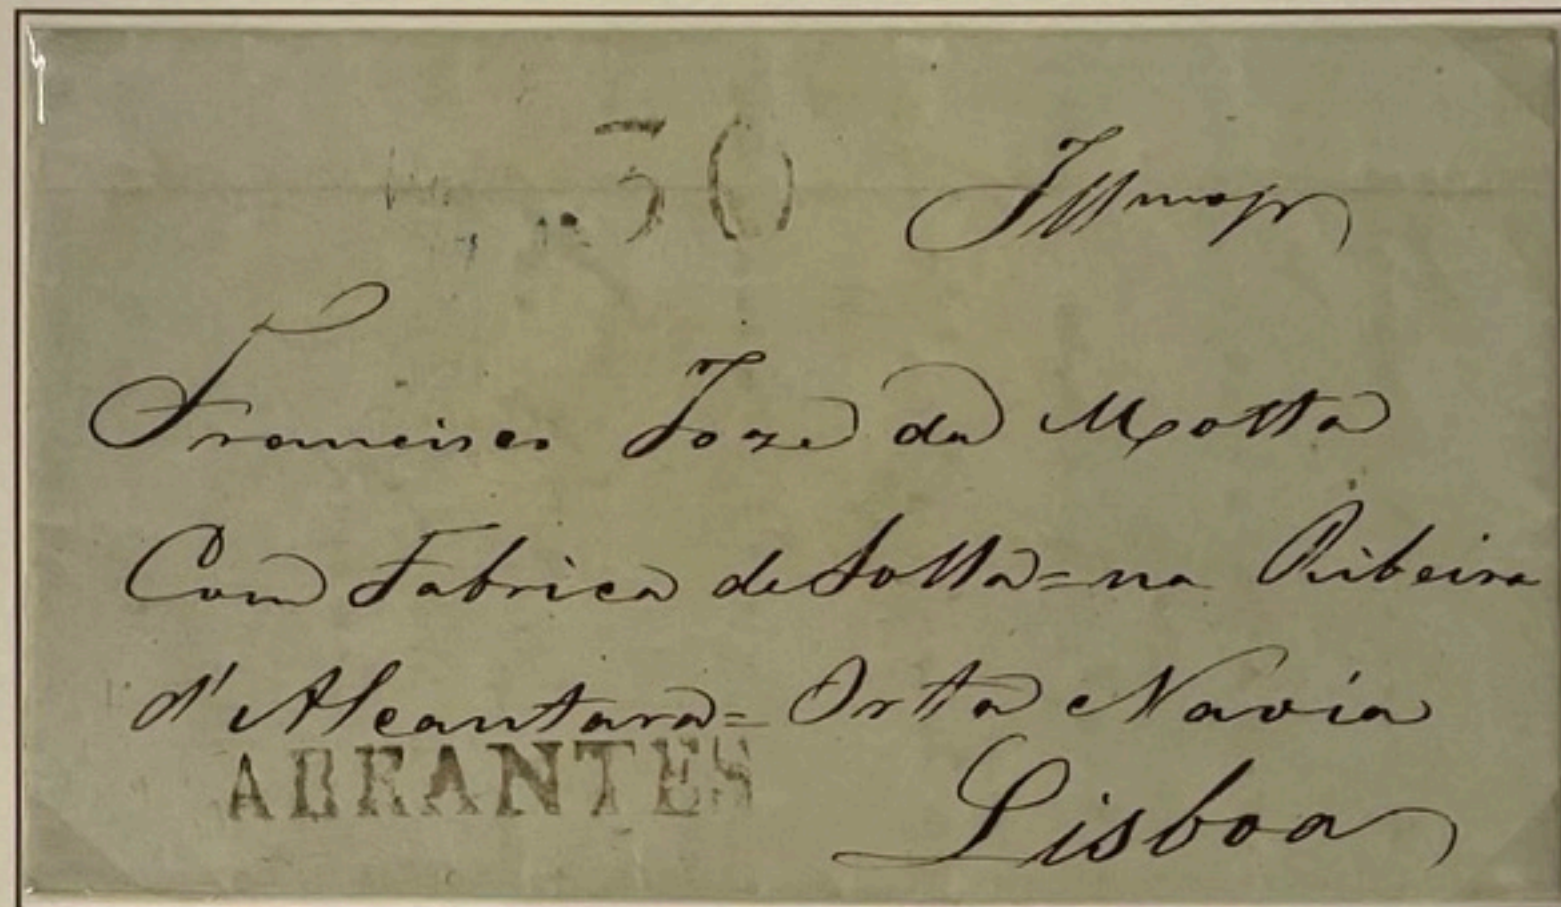 30
Illmo Sr
Francisco Joze da Motta
Com Fabrica de Solla = na Ribeira
d'Alcantara = Orta Navia
ABRANTES
Lisboa